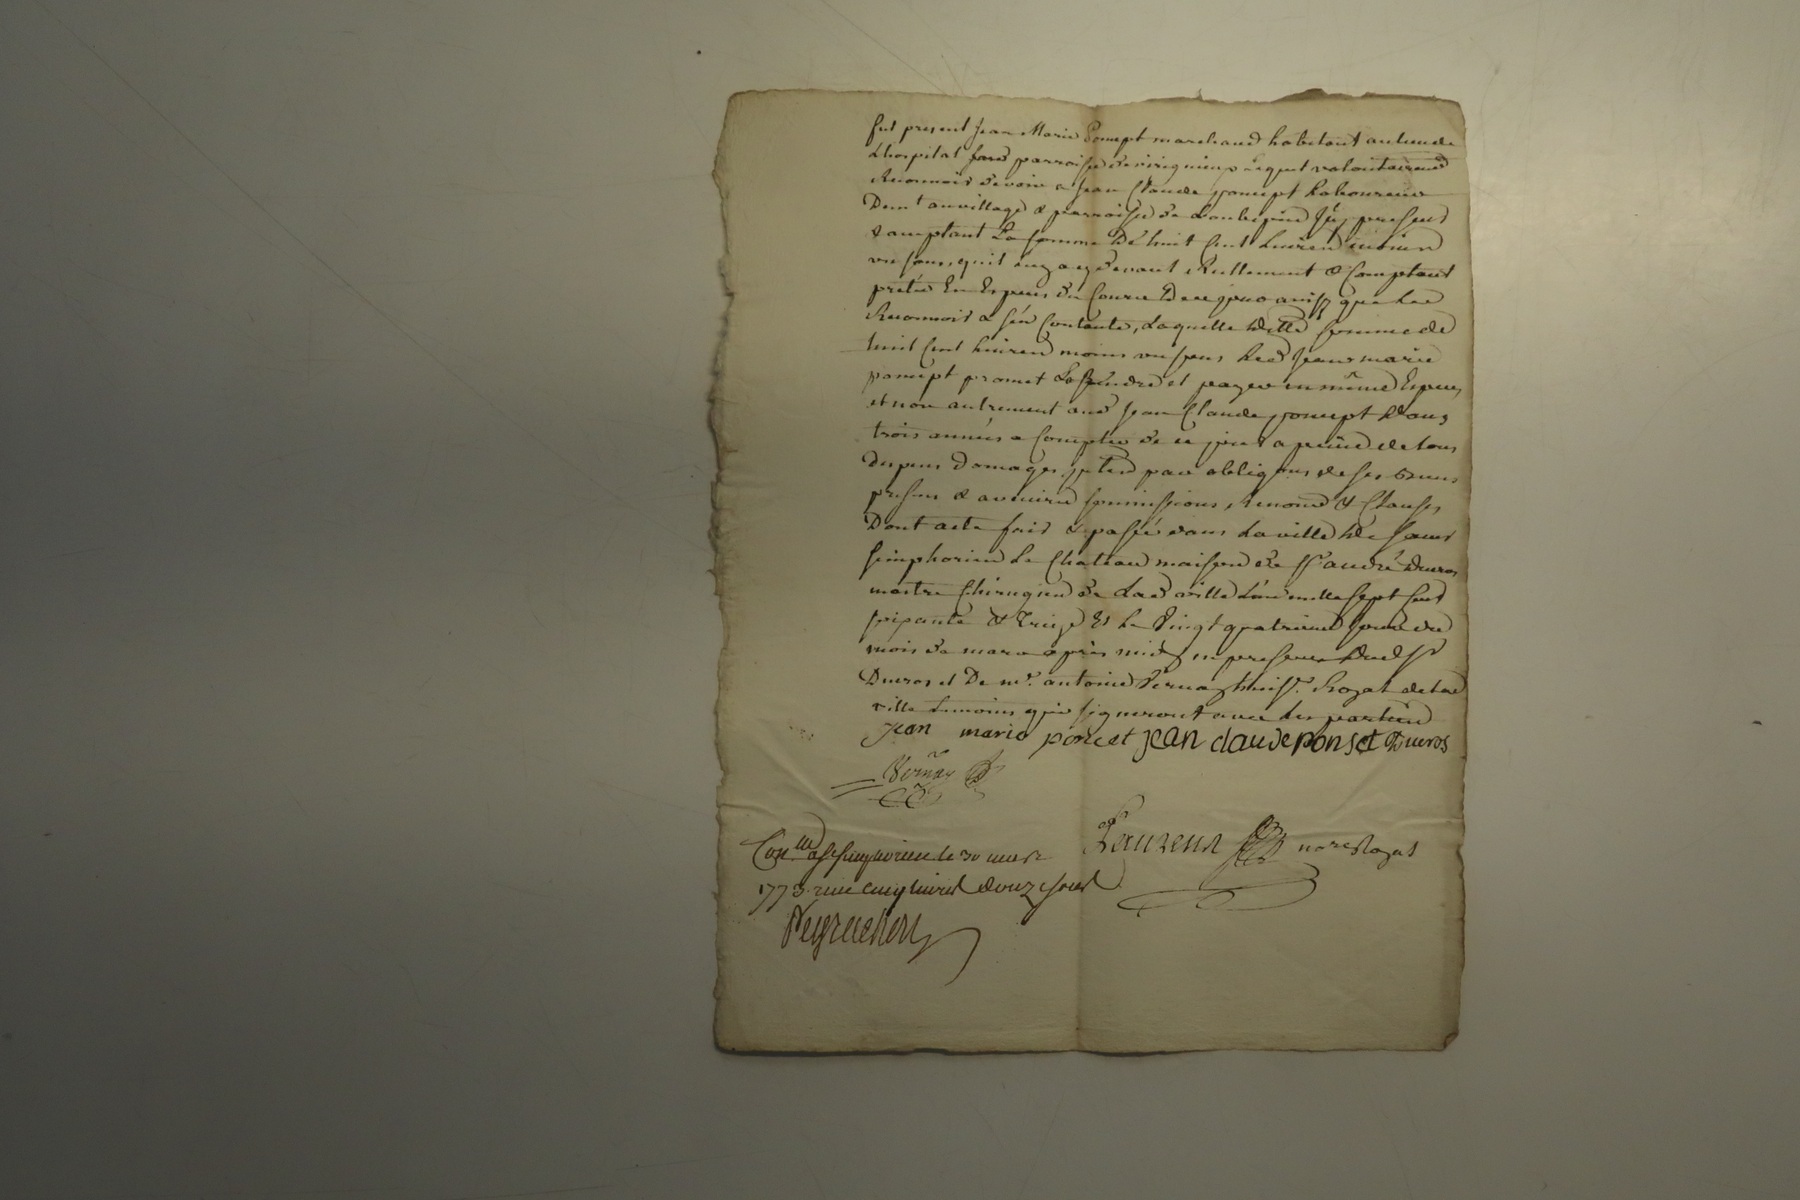 fut present Jean Marie Poncept marchand habitant au lieu de
Lhospital fard parroisse de virignieup lequel volontairemd
Reconnois devoir a Jean Claude poncept Laboureur
Demt au village & parroisse de Laubepin Jcy present
& acceptant La somme De huit Cent Livres moins
un sous, quil luy a cydevant Reellement & Comptant
prété En Especes du Cours De ce jour ainsy que Led
Reconnois a sen Contente, Laquelle ditte somme de
huit Cent Livres moins un sous Led Jean marie
poncept promet Le Rendre et payer en même Especes
et non autrement aud Jean Claude poncept Dans
trois années a Compter de ce jour a peine de tous
Depens Domages par obligons de ses biens
presens & avenire soumissions, Renond & Clauses
Dont acte fait & passé dans La ville De saint
simphorien Le Chateau maison de Sr andré Ducros
maitre Chirugien de Lad ville L'an mille sept Cent
soixante & treize Et Le Vingt quatrieme jour du
mois de mars apres midy en presence Dud Sr
Ducros et De mr. antoine Vernay huissr. Royal de lad
ville temoins qui signeront avec Les parties
Jean marie poncet jean claude ponset Ducros
Vernay
Laurend nore Royal
Conlle a st simphorien le 30 mars
1773 reçu cinq livres douze sous
Peyrachon